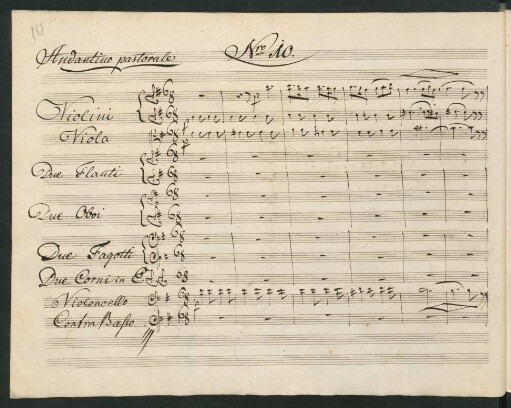 10
Andantino pastorale Nro 10.
Violini
Viola
Due Flauti
Due Oboi
Due Fagotti
Due Corni in E
Violoncello
Contra Basso